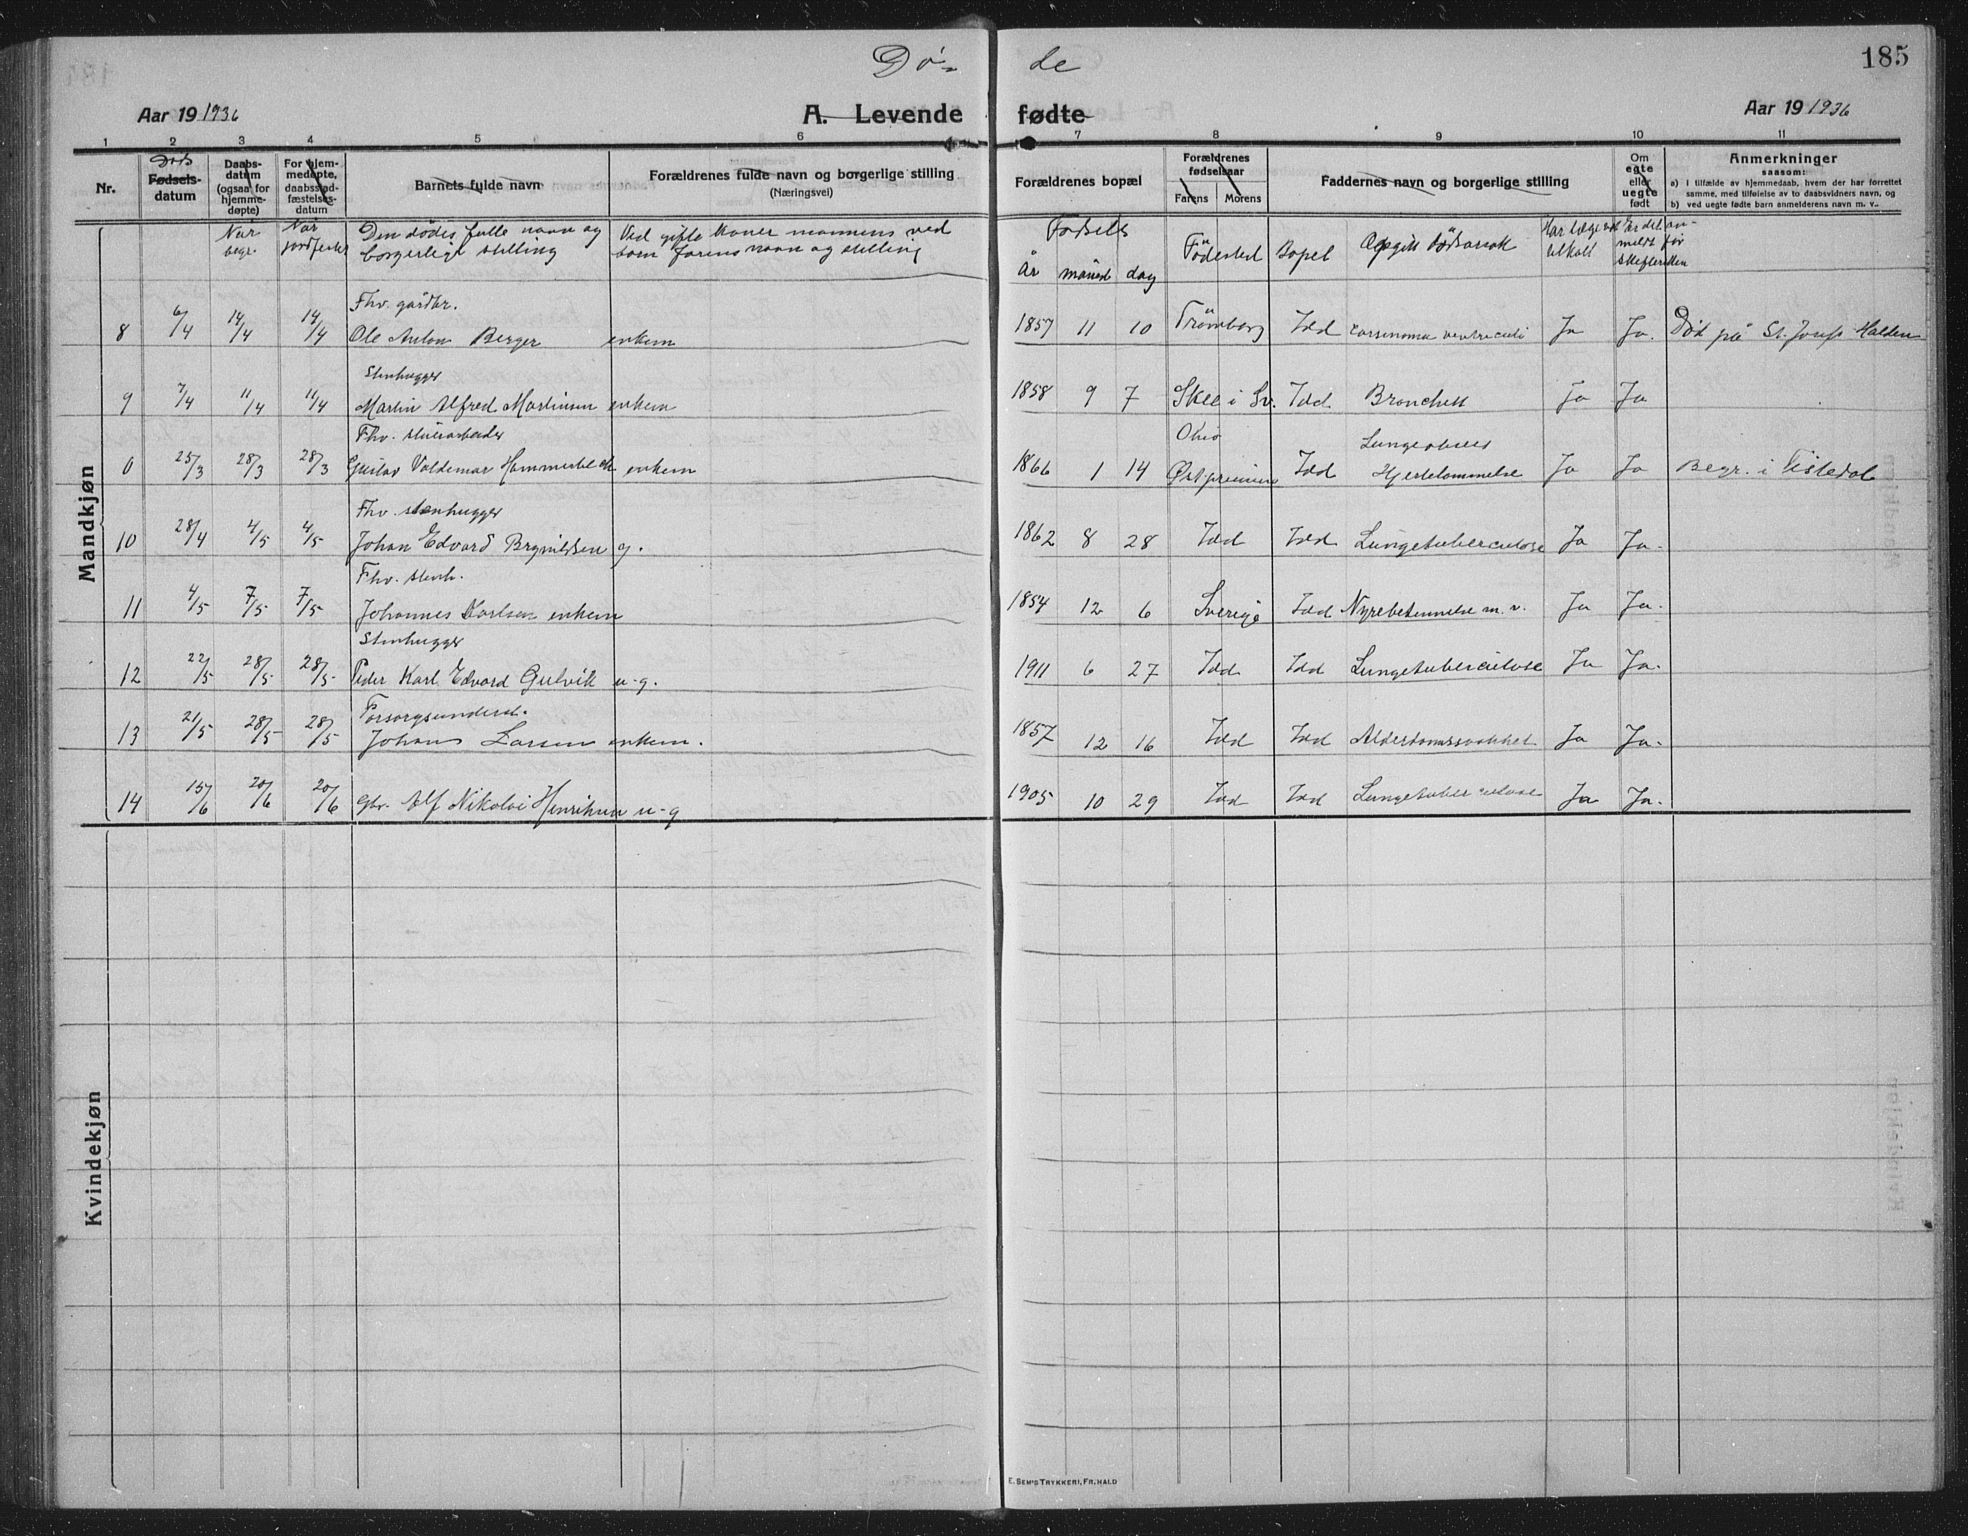 Dø- de
185
Aar 19 1936 A. Levende fødte Aar 19 1936
1 2 3 4 5 6 7 8 9 10 11
Nr.
Døds
Fødsels-
datum
Daabs-
datum
(ogsaa for
hjemme-
døpte)
For hjem-
medøpte,
daabsstad-
fæstelses-
datum
Barnets fulde navn
Forældrenes fulde navn og borgerlige stilling
(Næringsvei)
Forældrenes bopæl
Forældrenes
fødselsaar
Farens Morens
Faddernes navn og borgerlige stilling
Om
egte
eller
uegte
født
Anmerkninger
saasom:
a) I tilfælde av hjemmedaab, hvem der har forrettet
samme, med tilføielse av to daabsvidners navn, og
b) ved uegte fødte barn anmelderens navn m. v.
Når
begr.
Når
jordfestet
Den dødes fulle navn og
borgerligt stilling
Ved gifte koner mannens ved
barn farens navn og stilling
Fødsels
år måned dag
Fødested
Bopel
Opgitt dødsårsak
Har læge vært
tilkalt
Er det an-
meldt for
skifteretten
Mandkjøn
Fhv. gårdbr.
8 6/4 14/4 14/4 Ole Anton Berger enkem 1857 11 10 Trømborg Idd carsinoma ventriculi Ja Ja. Død på St. Josefs Halden
Stenhugger
9 7/4 11/4 11/4 Martin Alfred Martinsen enkem 1858 9 7 Skee i Sv. Idd Bronchitt Ja Ja
Fhv.
0 25/3 28/3 28/3 Gustav Valdemar enkem 1866 1 14 Idd Ja Ja Begr. i Tistedal
Fhv. stenhugger
10 28/4 4/5 4/5 Johan Edvard Brynildsen g. 1862 8 28 Idd Idd Lungetuberculose Ja Ja.
Fhv. stenh.
11 4/5 7/5 7/5 Johannes Karlsen enkem 1854 12 6 Sverige Idd Nyrebetennelse m. v. Ja Ja.
Stenhugger
12 22/5 28/5 28/5 Peder Karl Edvard Gulvik u-g. 1911 6 27 Idd Idd Lungetuberculose Ja Ja.
Forsorgsunderst.
13 21/5 28/5 28/5 Johans Larsen enkem. 1857 12 16 Idd Idd Alderdomssvakhet Ja Ja.
14 15/6 20/6 20/6 Gbr. Alf Nikolai Henriksen u-g 1905 10 29 Idd Idd Lungetuberculose Ja Ja.
Kvindekjøn
E. SEM'S TRYKKERI, FR.HALD